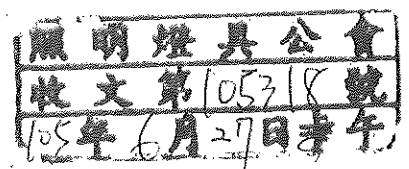 照明燈具公會
收文第105318號
105年6月27日 午